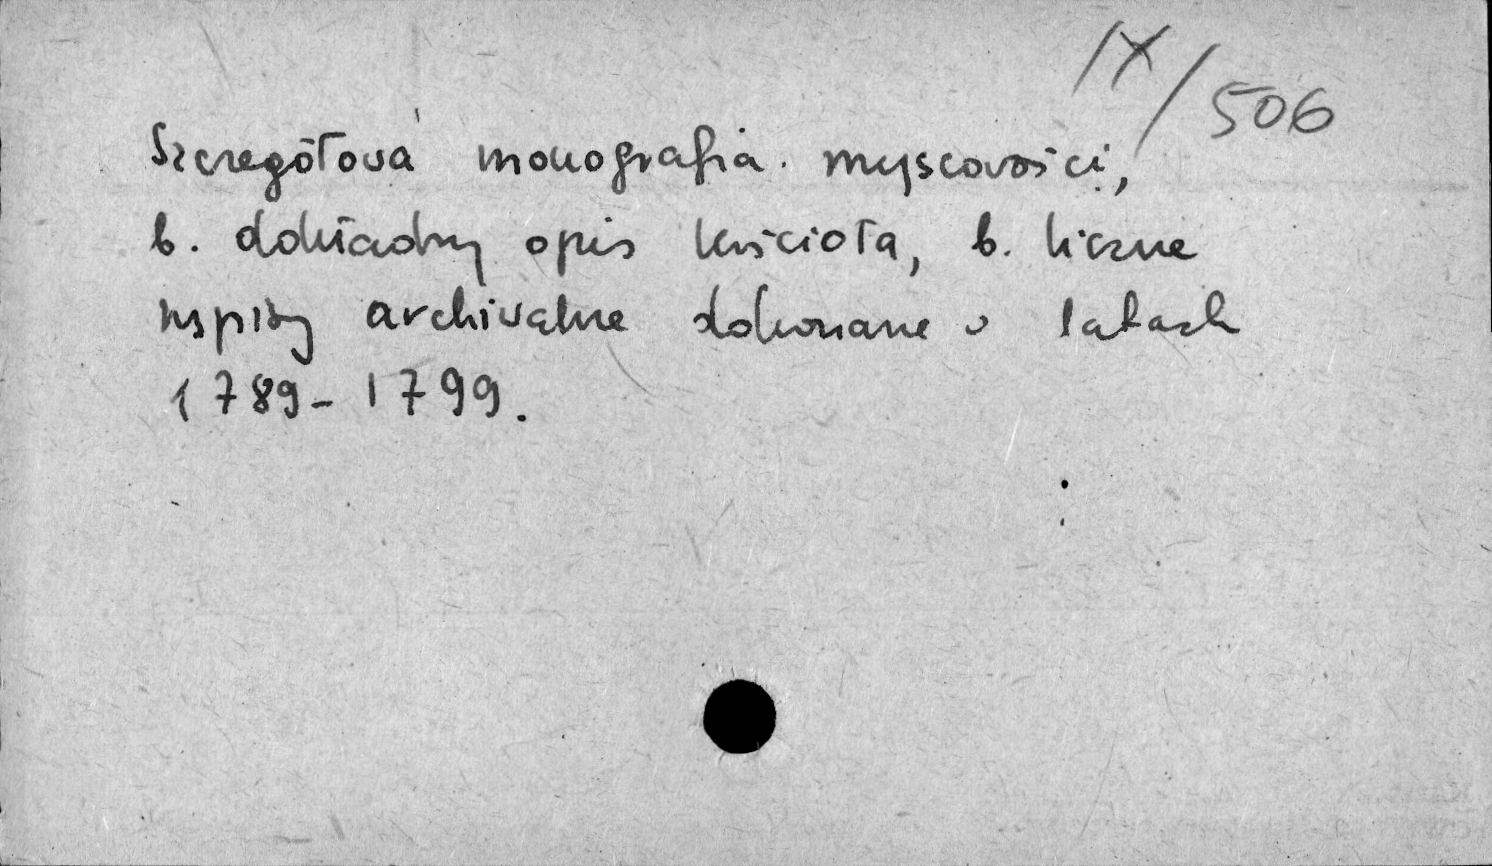 IX/506
Szczegółowa monografia miejscowości,
b. dokładny opis kościoła, b. liczne
wypisy archiwalne dokonane w latach
1789-1799.